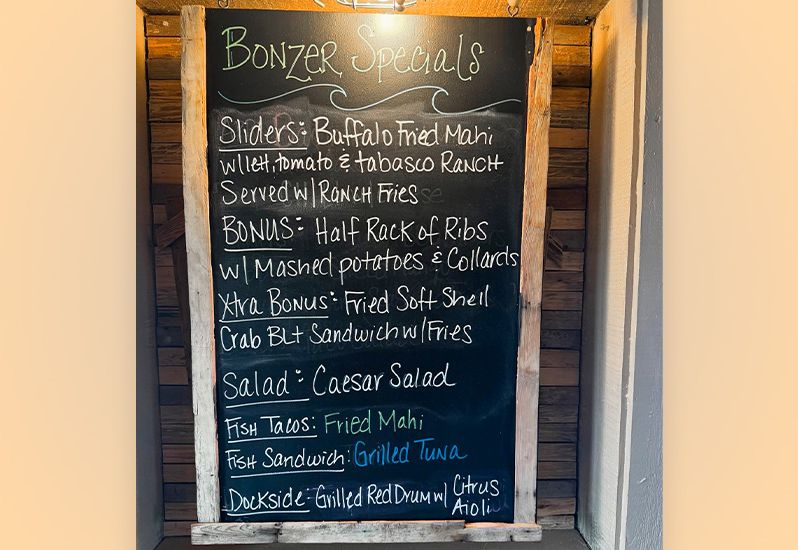 Bonzer Specials
Sliders: Buffalo Fried Mahi
w/lett, tomato & tabasco RANCH
Served w/RANCH Fries
BONUS: Half Rack of Ribs
w/ Mashed potatoes & Collards
Xtra Bonus: Fried Soft Shell
Crab BLt Sandwich w/Fries
Salad: Caesar Salad
Fish Tacos: Fried Mahi
Fish Sandwich: Grilled Tuna
Dockside: Grilled Red Drum w/ Citrus
Aioli